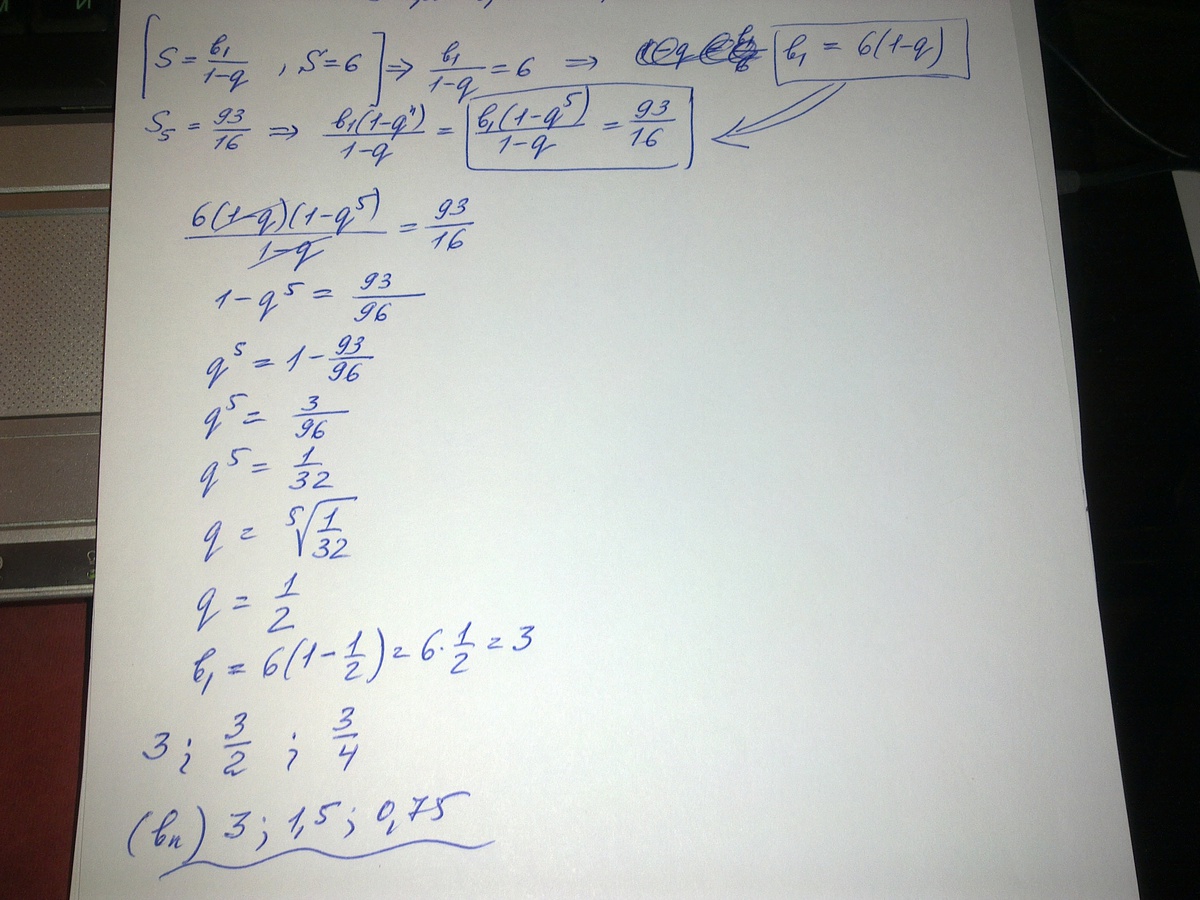 [S = b₁/(1-q) , S = 6] ⇒ b₁/(1-q) = 6 ⇒ b₁ = 6(1-q)
S₅ = 93/16 ⇒ b₁(1-qⁿ)/(1-q) = b₁(1-q⁵)/(1-q) = 93/16
6(1-q)(1-q⁵)/(1-q) = 93/16
1-q⁵ = 93/96
q⁵ = 1 - 93/96
q⁵ = 3/96
q⁵ = 1/32
q = ⁵√(1/32)
q = 1/2
b₁ = 6(1 - 1/2) = 6 · 1/2 = 3
3 ; 3/2 ; 3/4
(bn) 3 ; 1,5 ; 0,75